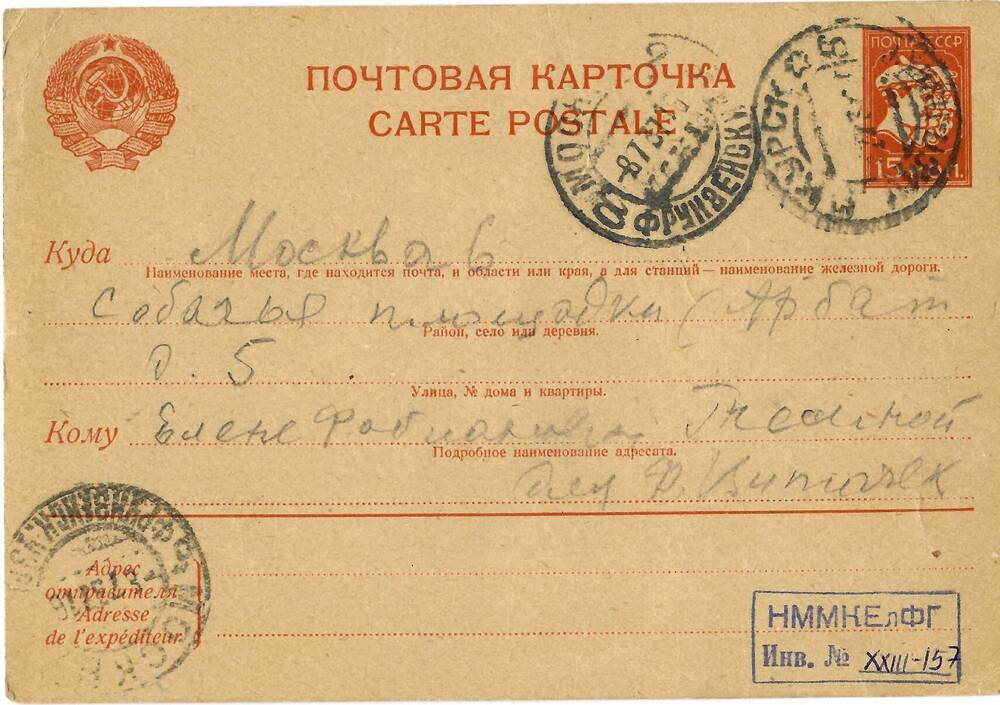 ПОЧТОВАЯ КАРТОЧКА
CARTE POSTALE
ПОЧТА СССР
15
МОСК ФРУНЗЕНСКИ
КУРСК
Куда Москва 6
Наименование места, где находится почта, и области или края, а для станций — наименование железной дороги.
Собачья площадка (Арбат
Район, село или деревня.
д. 5
Улица, № дома и квартиры.
Кому Елене Фабиановне Гнесиной
Подробное наименование адресата.
для
Адрес
отправителя
Adresse
de l'expéditeur
НММКЕлФГ
Инв. № XXIII-157